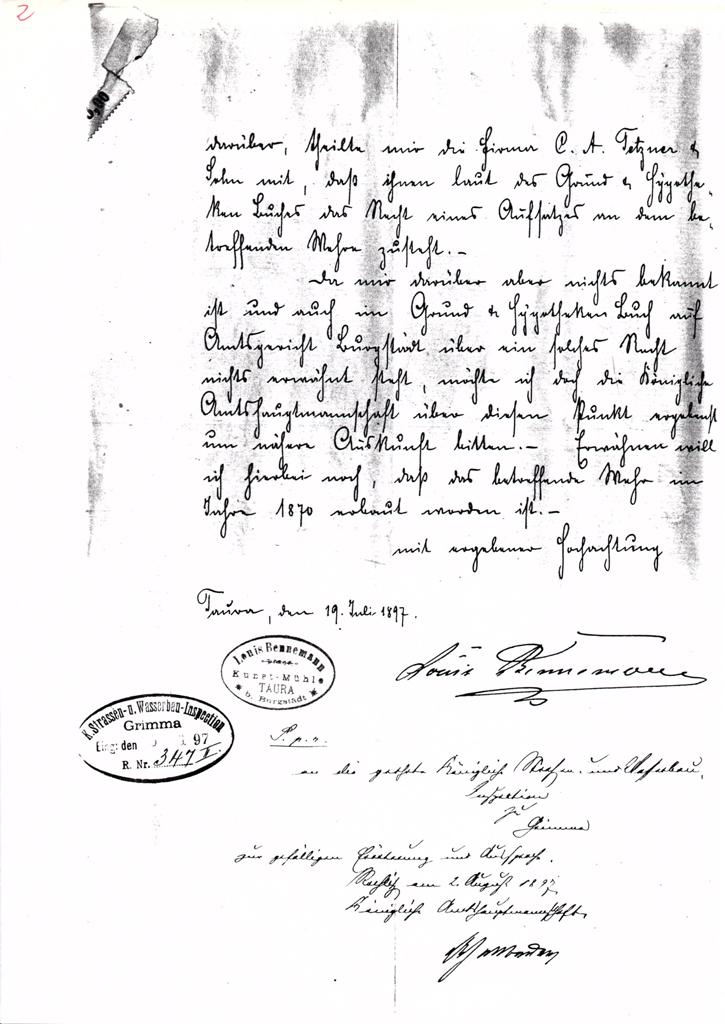 2
5,00
darüber, theilte mir die Firma C. A. Tetzner &
Sohn mit, daß ihnen laut des Grund & Hÿpothe-
ken Buches das Recht eines Aufsatzes an dem be-
treffenden Wehre zusteht. –
Da mir darüber aber nichts bekannt
ist und auch im Grund & Hÿpotheken Buch auf
Amtsgericht Burgstädt über ein solches Recht
nichts erwähnt steht, möchte ich doch die Königliche
Amtshauptmannschaft über diesen Punkt ergebenst
um nähere Auskunft bitten. – Erwähnen will
ich hierbei noch, daß das betreffende Wehr im
Jahre 1870 erbaut worden ist. –
mit ergebener Hochachtung
Taura, den 19. Juli 1897.
Louis Bennemann
Louis Bennemann
Kunst-Mühle
TAURA
b. Burgstädt
K. Strassen- u. Wasserbau-Inspection
Grimma
Eing: den 97
R. Nr. 347 I.
S. p. r.
an die geehrte Königliche Straßen- und Wasserbau-
Inspektion
zu
Grimma
zur gefälligen Erörterung und Aussprache.
Rochlitz am 2. August 1897
Königliche Amtshauptmannschaft.